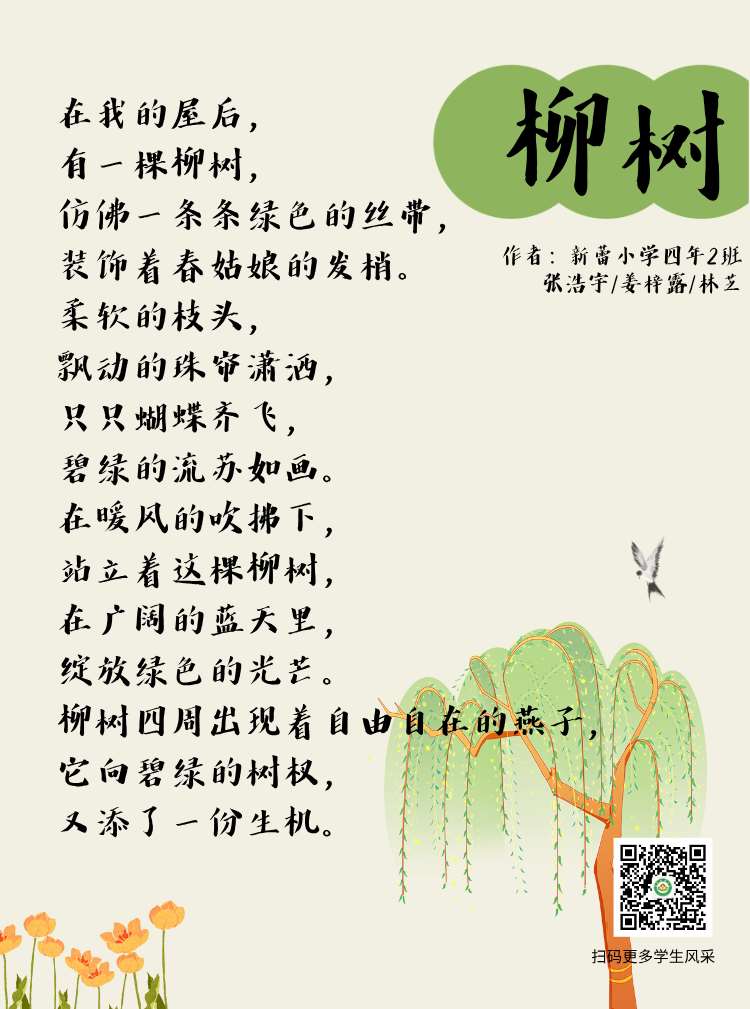 柳树
作者：新蕾小学四年2班
张浩宇/姜梓露/林芝
在我的屋后，
有一棵柳树，
仿佛一条条绿色的丝带，
装饰着春姑娘的发梢。
柔软的枝头，
飘动的珠帘潇洒，
只只蝴蝶齐飞，
碧绿的流苏如画。
在暖风的吹拂下，
站立着这棵柳树，
在广阔的蓝天里，
绽放绿色的光芒。
柳树四周出现着自由自在的燕子，
它向碧绿的树杈，
又添了一份生机。
扫码更多学生风采